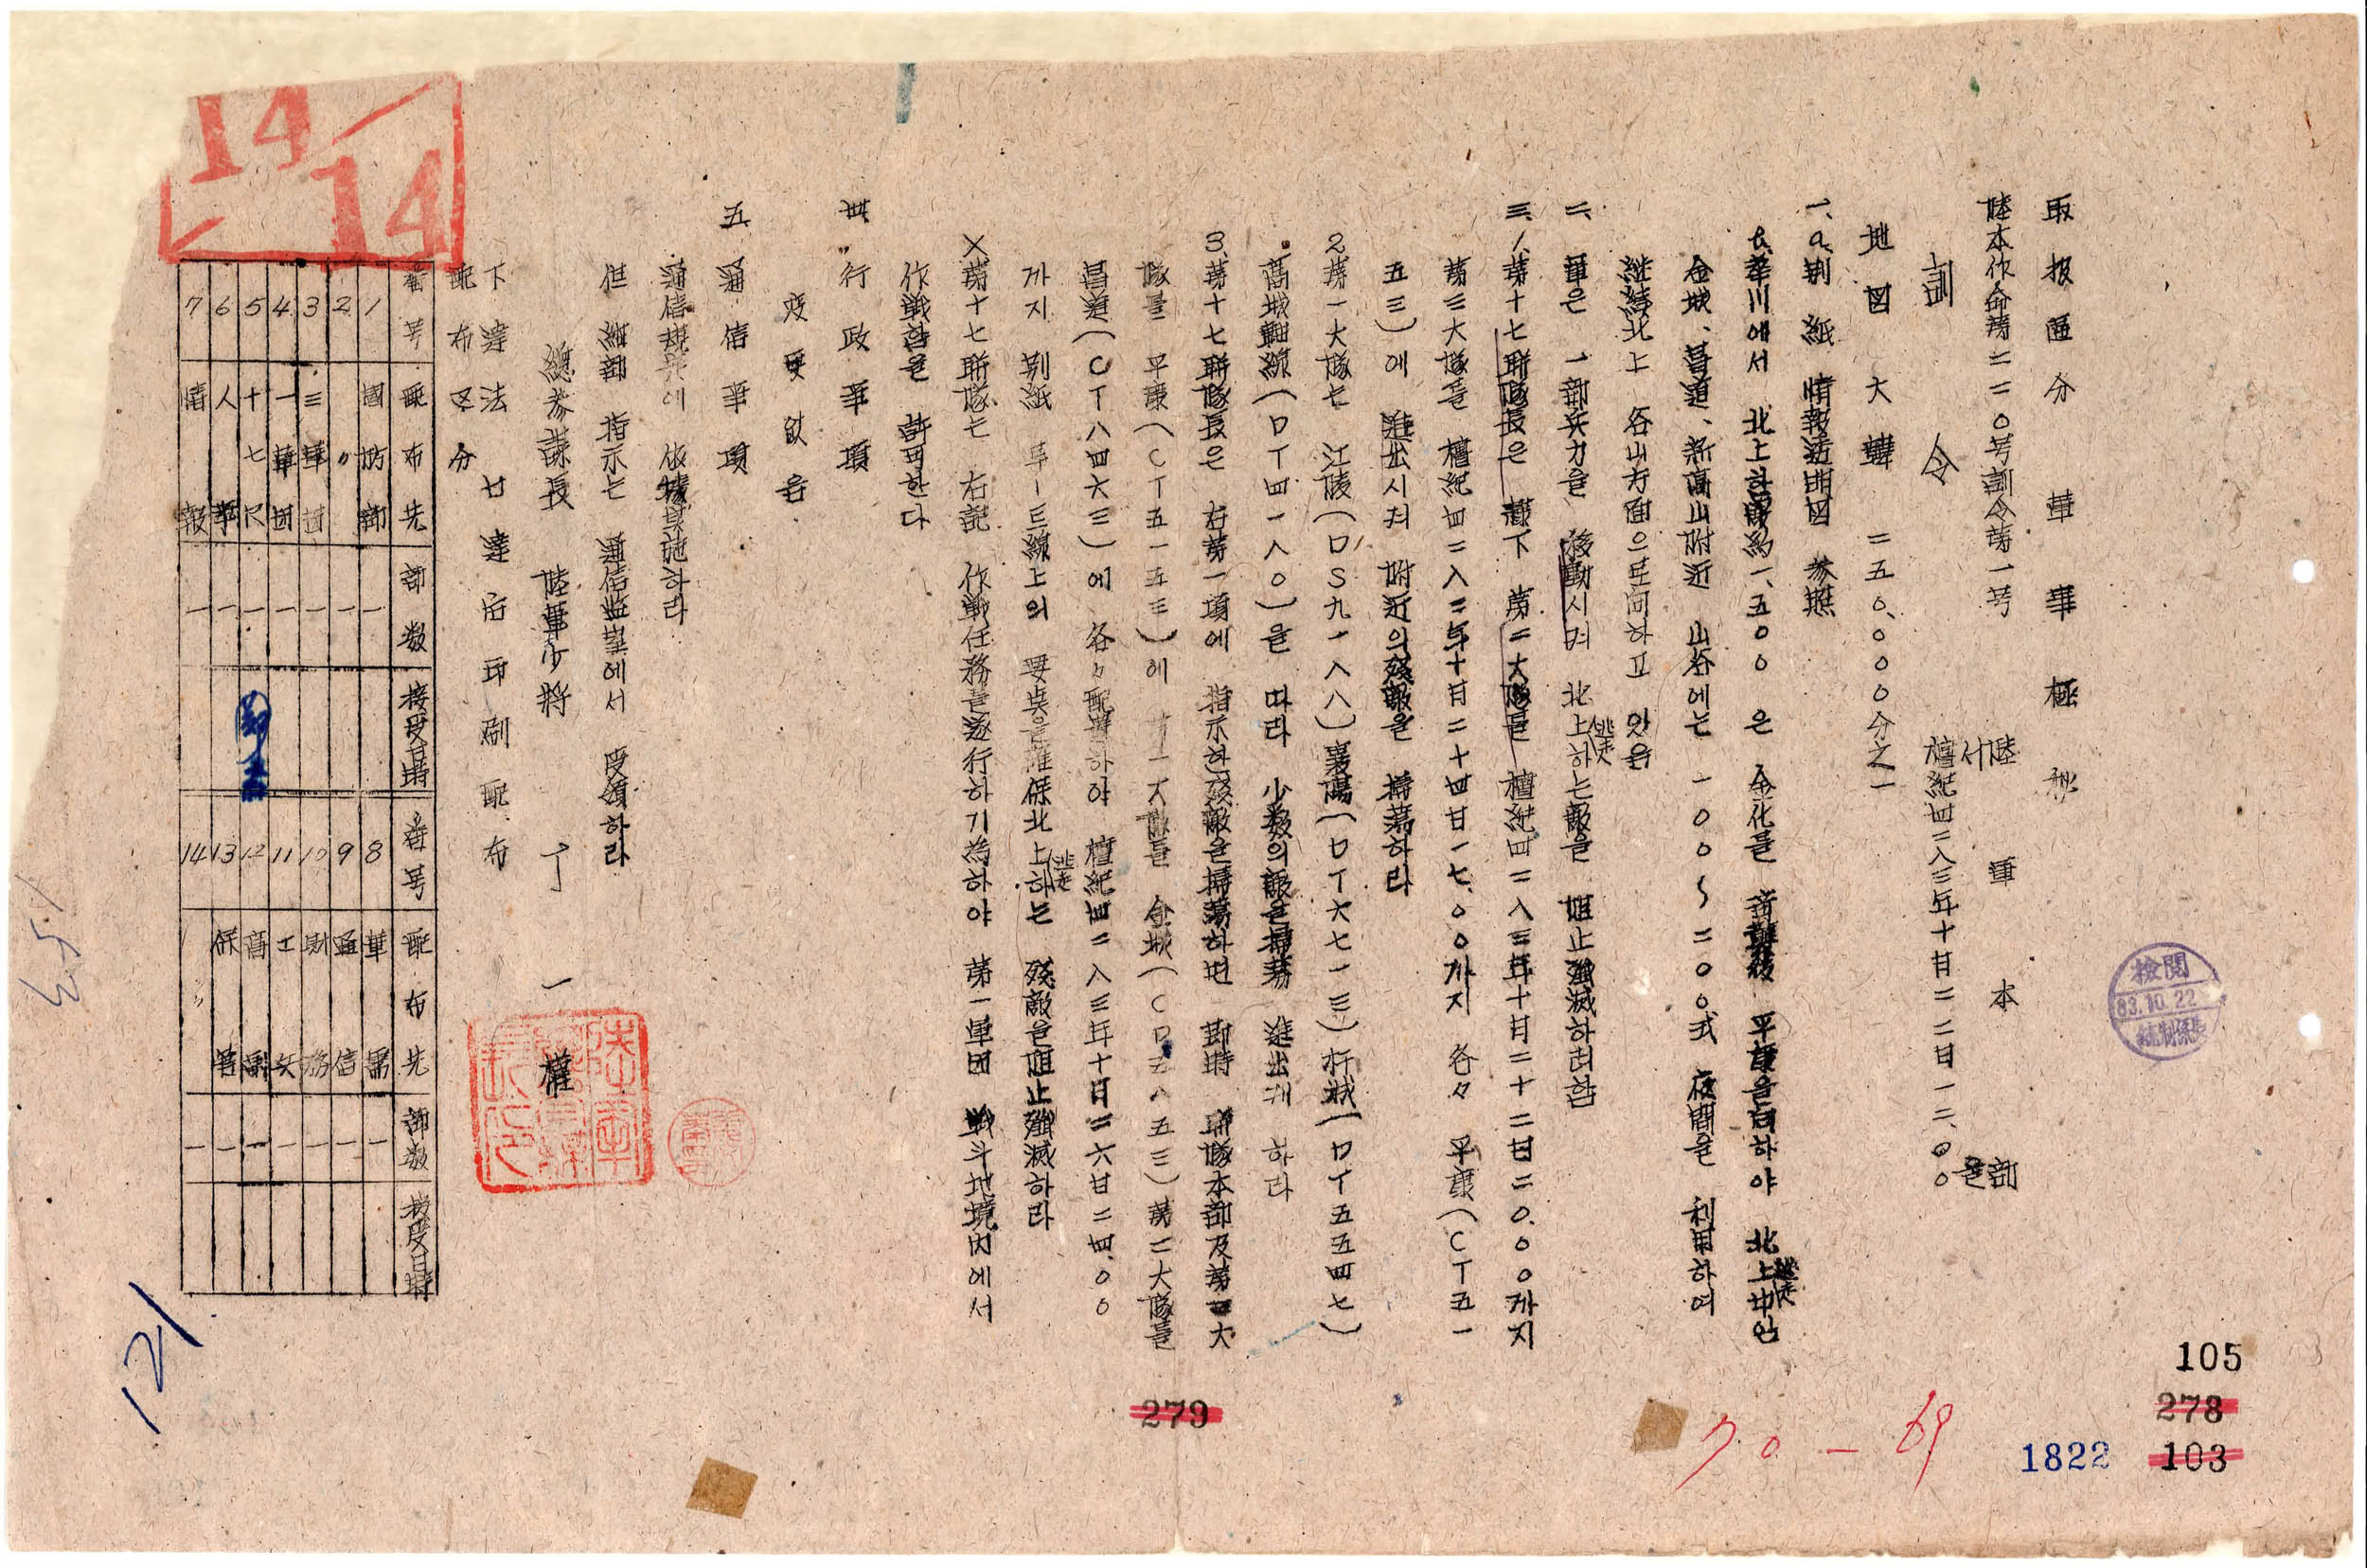 取扱區分 軍事極秘
陸軍本部
陸本作命第二二〇号訓令第一号
서울
訓令
檀紀四二八三年十月二二日一二、〇〇
地図 大韓 二五〇、〇〇〇分之一
一、a. 別紙 情報透明図 参照
b. 華川에서 北上하는敵約一、五〇〇은 金化를 平康을向하야 北上中인
逃走
金城、昌道、新高山附近 山谷에는 一〇〇~二〇〇式 夜間을 利用하여
継続北上 谷山方面으로向하고 있음
二、軍은 一部兵力을 移動시켜 北上하는敵을 阻止殲滅하려함
逃走
三、1. 第十七聯隊長은 隷下 第二大隊를 檀紀四二八三年十月二十二日二〇.〇〇까지
第三大隊를 檀紀四二八三年十月二十四日一七.〇〇까지 各々 平康(CT五一
五三)에 進出시켜 附近의残敵을 掃蕩하라
2. 第一大隊는 江陵(DS九一八八)襄陽(DT六七一三)杆城(DT五五四七)
高城軸線(DT四一八〇)을 따라 少数의敵을掃蕩 進出케 하라
3. 第十七聯隊長은 右第一項에 指示한残敵을掃蕩하면 即時 聯隊本部及第一大
隊를 平康(CT五一五三)에 第一大隊를 金城(CD五八五三)第二大隊를
昌道(CT八四六三)에 各々配置하야 檀紀四二八三年十月二六日二四.〇〇
까지 別紙 투ー三線上의 要点을確保北上하는 残敵을阻止殲滅하라
逃走
X 第十七聯隊는 右記 作戦任務를遂行하기為하야 第一軍団 戦斗地境内에서
作戦함을 許可한다
四、行政事項
変更없음
五、通信事項
通信規定에 依據実施하라
但 細部 指示는 通信監室에서 受領하라
總参謀長 陸軍少將 丁一權
下達法 口達后印刷配布
配布区分
番号 配布先 部数 接受日時 番号 配布先 部数 接受日時
1 國防部 一 8 軍需 一
2 〃 一 9 通信 一
3 三軍団 一 10 財務 一
4 一軍団 一 11 工兵 一
5 十七R 一 12 高副 一
6 人事 一 13 保管 一
7 情報 一 14 〃 一
14
14
檢閲
83.10.22
105
278
103
1822
279
70-69
121
153